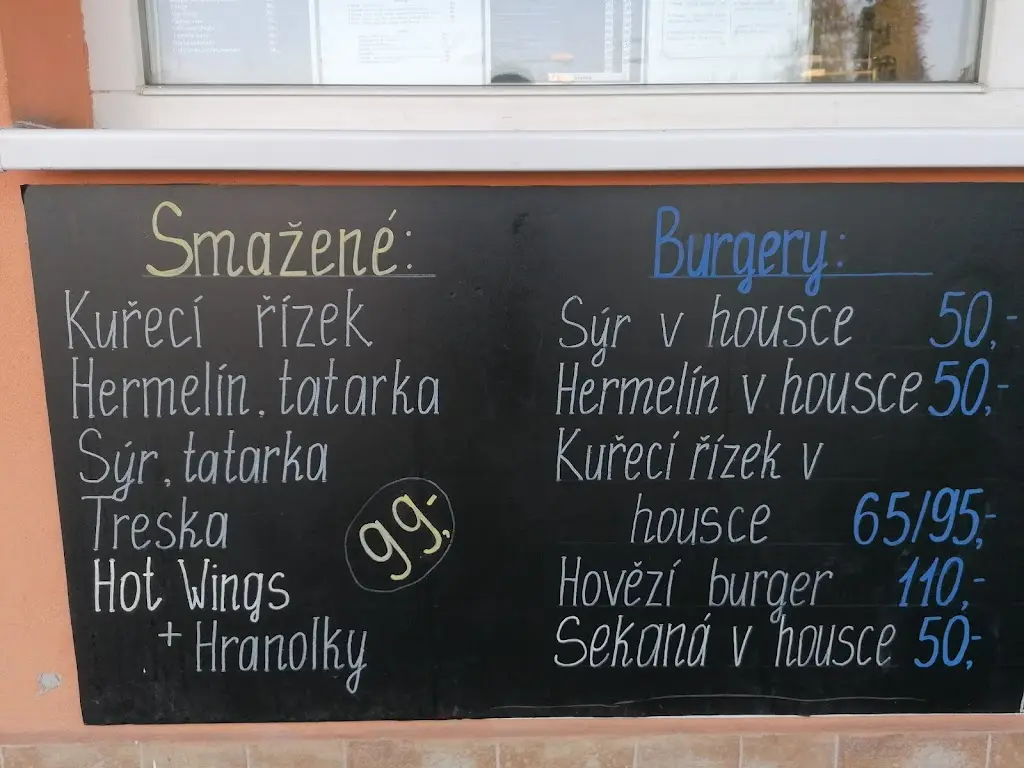 Smažené:
Kuřecí řízek
Hermelín, tatarka
Sýr, tatarka
Treska
Hot Wings
+ Hranolky
99,-
Burgery:
Sýr v housce 50,-
Hermelín v housce 50,-
Kuřecí řízek v
housce 65/95,-
Hovězí burger 110,-
Sekaná v housce 50,-